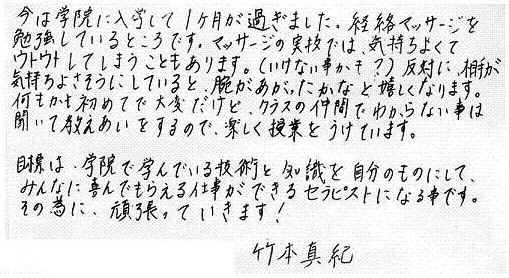 今は学院に入学して1ヶ月が過ぎました。経絡マッサージを
勉強しているところです。マッサージの実技では、気持ちよくて
ウトウトしてしまうこともあります。(いけない事かも?)反対に、相手が
気持ちよさそうにしていると、腕があがったかなと嬉しくなります。
何もかも初めてで大変だけど、クラスの仲間でわからない事は
聞いて教えあいをするので、楽しく授業をうけています。
目標は、学院で学んでいる技術と知識を自分のものにして、
みんなに喜んでもらえる仕事ができるセラピストになる事です。
その為に、頑張っていきます!
竹本真紀